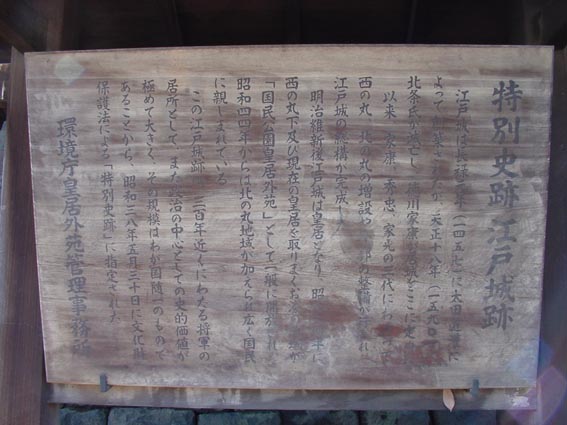 特別史跡 江戸城跡
江戸城は長禄元年(一四五七)に太田道灌に
よって創築されたが、天正十八年(一五九〇)
北条氏が滅亡し、徳川家康が居城をここに定め
以来、家康、秀忠、家光の三代にわたって
西の丸、北の丸の増設や の整備が行われ
江戸城の総構が完成した。
明治維新後江戸城は皇居となり、昭和 年に
西の丸下及び現在の皇居を取りまくお濠の地域が
「国民公園皇居外苑」として一般に開放され
昭和四四年からは北の丸地域が加えられ広く国民
に親しまれている。
この江戸城跡は、三百年近くにわたる将軍の
居所として、また政治の中心としての史的価値が
極めて大きく、その規模はわが国随一のもので
あることから、昭和三八年五月三十日に文化財
保護法による「特別史跡」に指定された。
環境庁皇居外苑管理事務所